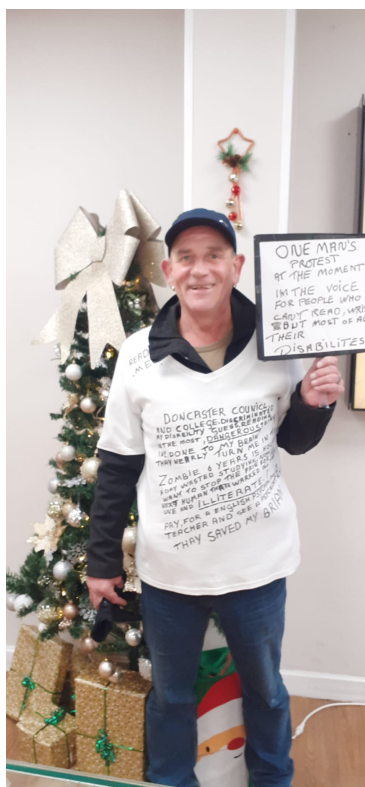 ONE MAN'S
PROTEST
AT THE MOMENT
IM THE VOICE
FOR PEOPLE WHO
CAN'T READ, WRI
BUT MOST OF AL
THEIR
DISABILITES
READ
ME
DONCASTER COUNCIL
AND COLLEGE. DISCRIMINATED
MY DISABILITY
THE MOST, DANGEROUS
DONE TO MY BRAIN
THEY NEARLY TURN ME IN
ZOMBIE 6 YEARS
A DAY WASTED STUDYING
WANT TO STOP THE
HUMAN THAT WALKED
USE AND ILLITERATE
PAY, FOR A ENGLISH
TEACHER AND SEE
THAY SAVED MY BRAIN